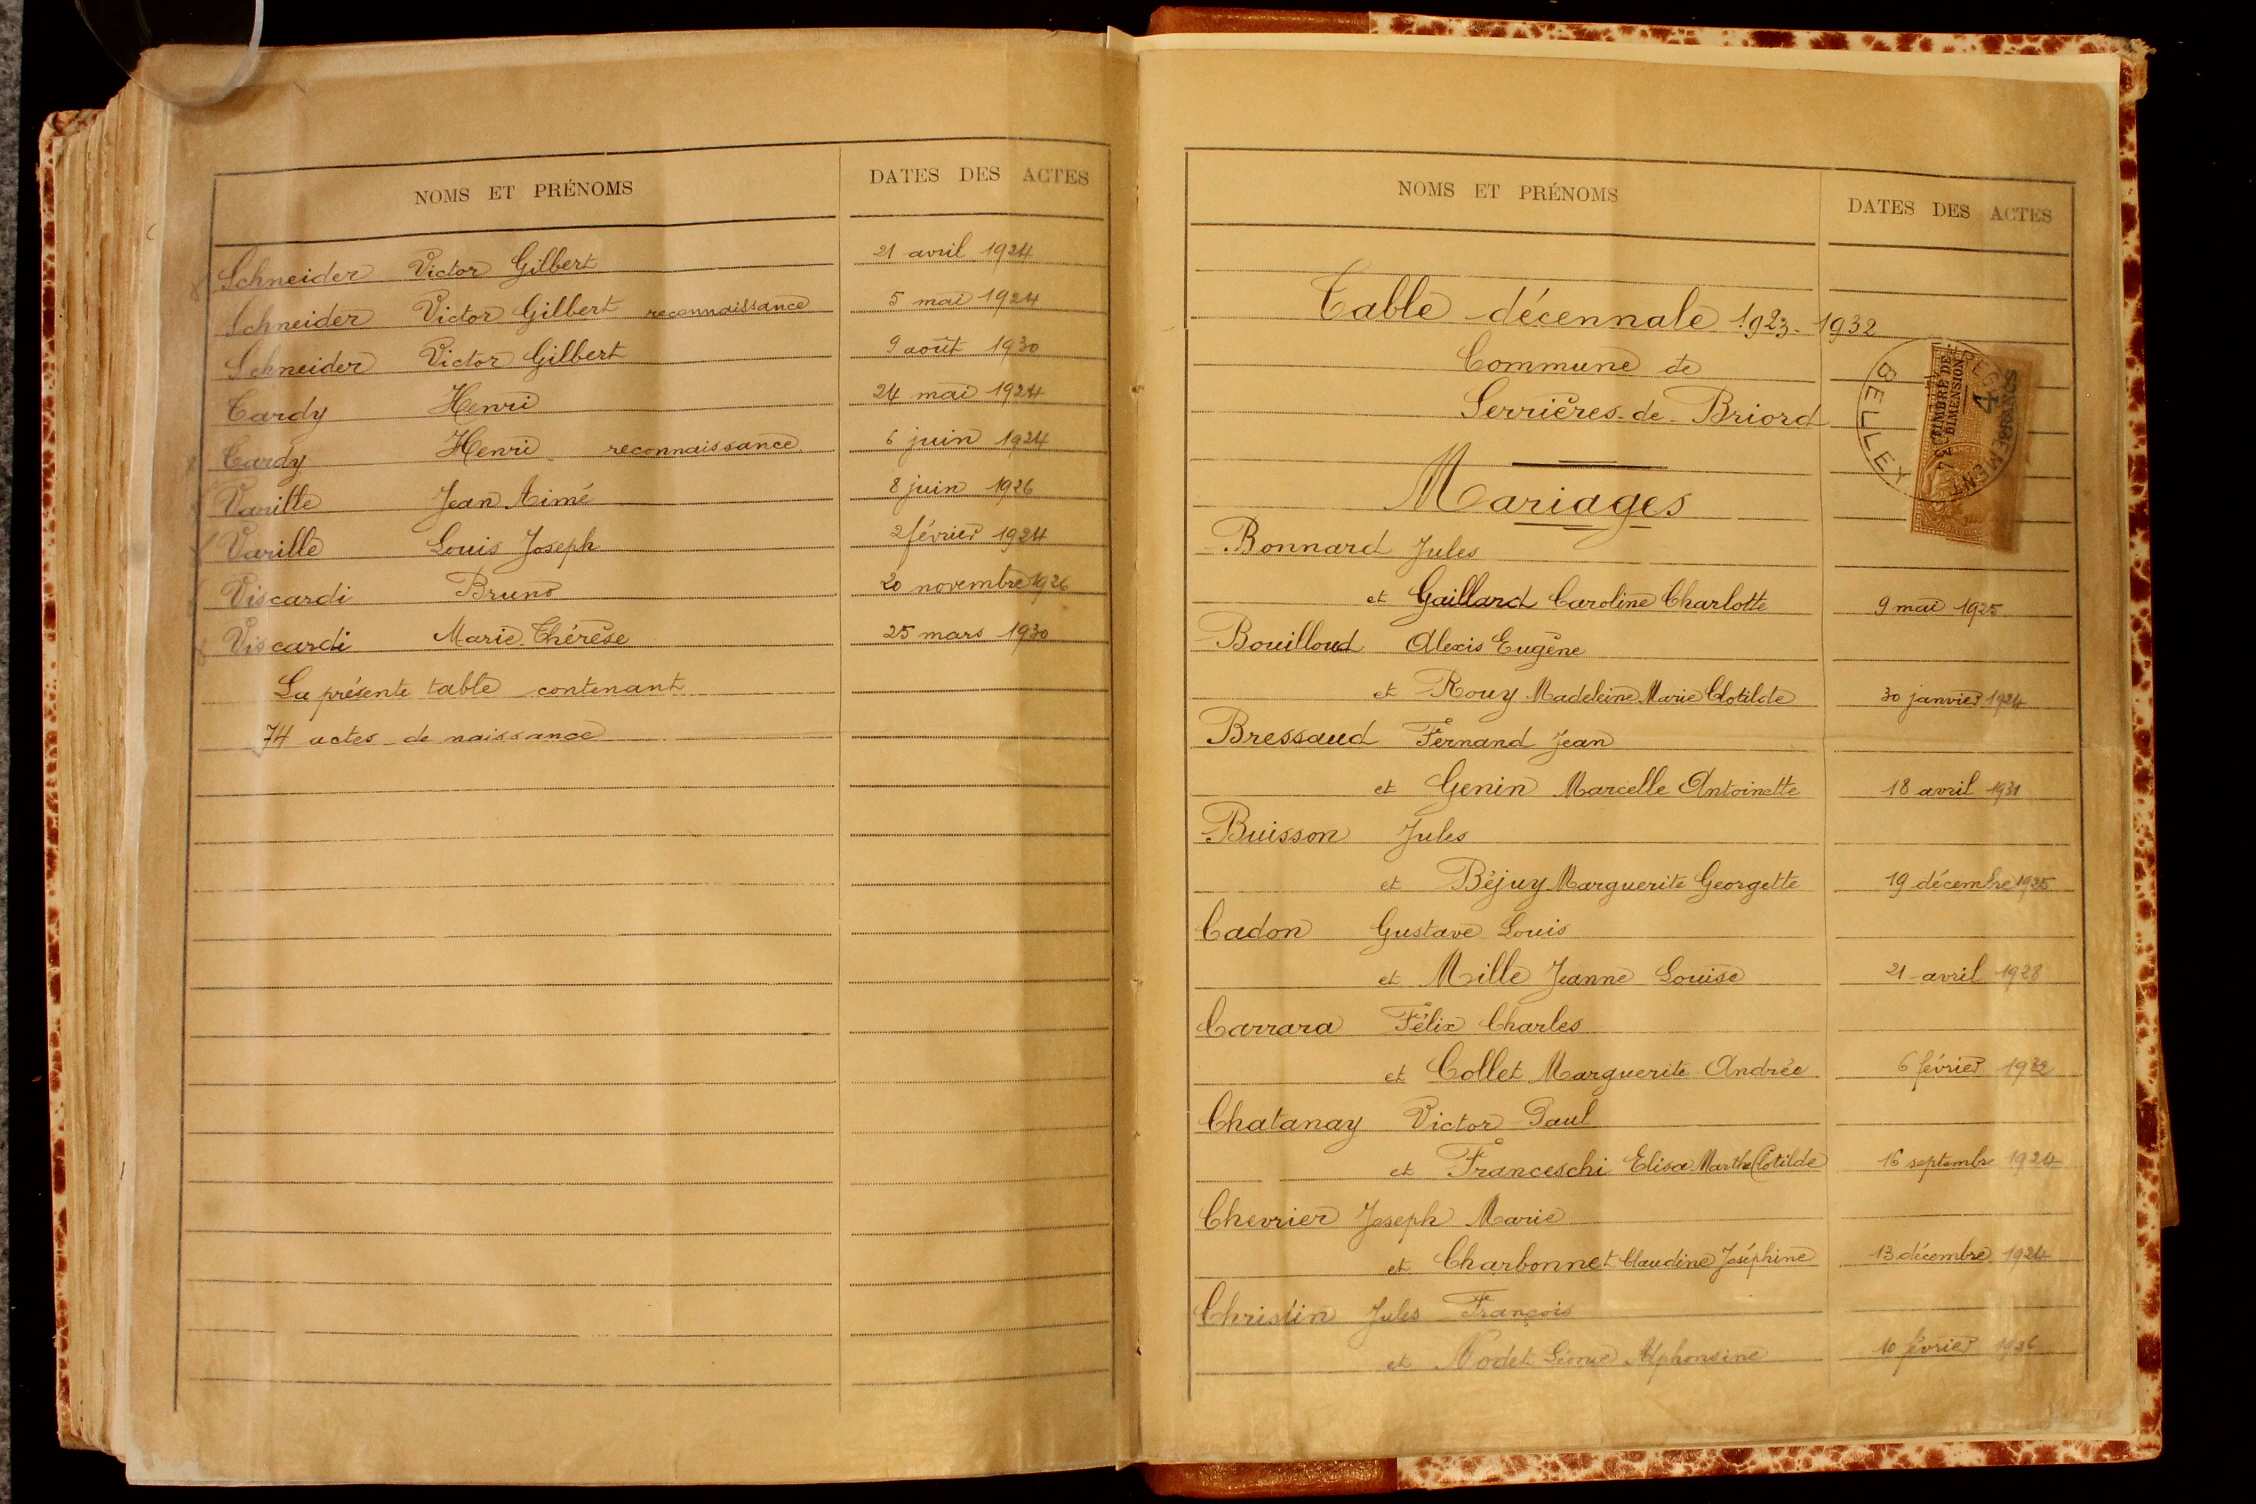 NOMS ET PRÉNOMS DATES DES ACTES
Schneider Victor Gilbert 21 avril 1924
Schneider Victor Gilbert reconnaissance 5 mai 1924
Schneider Victor Gilbert 9 août 1930
Tardy Henri 24 mai 1924
Tardy Henri reconnaissance 6 juin 1924
Varille Jean Aimé 8 juin 1926
Varille Louis Joseph 2 février 1924
Viscardi Bruno 20 novembre 1926
Viscardi Marie Thérèse 25 mars 1930
La présente table contenant
74 actes de naissance
NOMS ET PRÉNOMS DATES DES ACTES
Table décennale 1923-1932
Commune de
Serrières-de-Briord
Mariages
BELLEY
ENREGISTREMENT
TIMBRE DE
DIMENSION
4 FRANCS
Bonnard Jules
et Gaillard Caroline Charlotte 9 mai 1925
Bouilloud Alexis Eugène
et Rouy Madeleine Marie Clotilde 30 janvier 1924
Bressaud Fernand Jean
et Genin Marcelle Antoinette 18 avril 1931
Buisson Jules
et Béjuy Marguerite Georgette 19 décembre 1925
Cadon Gustave Louis
et Mille Jeanne Louise 21 avril 1928
Carrara Félix Charles
et Collet Marguerite Andrée 6 février 1932
Chatanay Victor Paul
et Franceschi Elisa Marthe Clotilde 16 septembre 1924
Chevrier Joseph Marie
et Charbonnet Claudine Joséphine 13 décembre 1924
Christin Jules François
et Nodet Alphonsine 10 février 1926